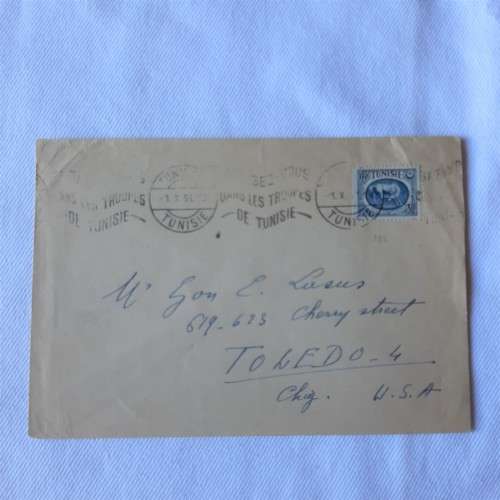 TUNISIE
DANS LES TROUPES
DE TUNISIE
TUNIS
-1.X 51
TUNISIE
GEZ-VOUS
DANS LES TROUPES
DE TUNISIE
Mr Gon E. Lasus
619-623 Cherry street
TOLEDO-4
U.S.A